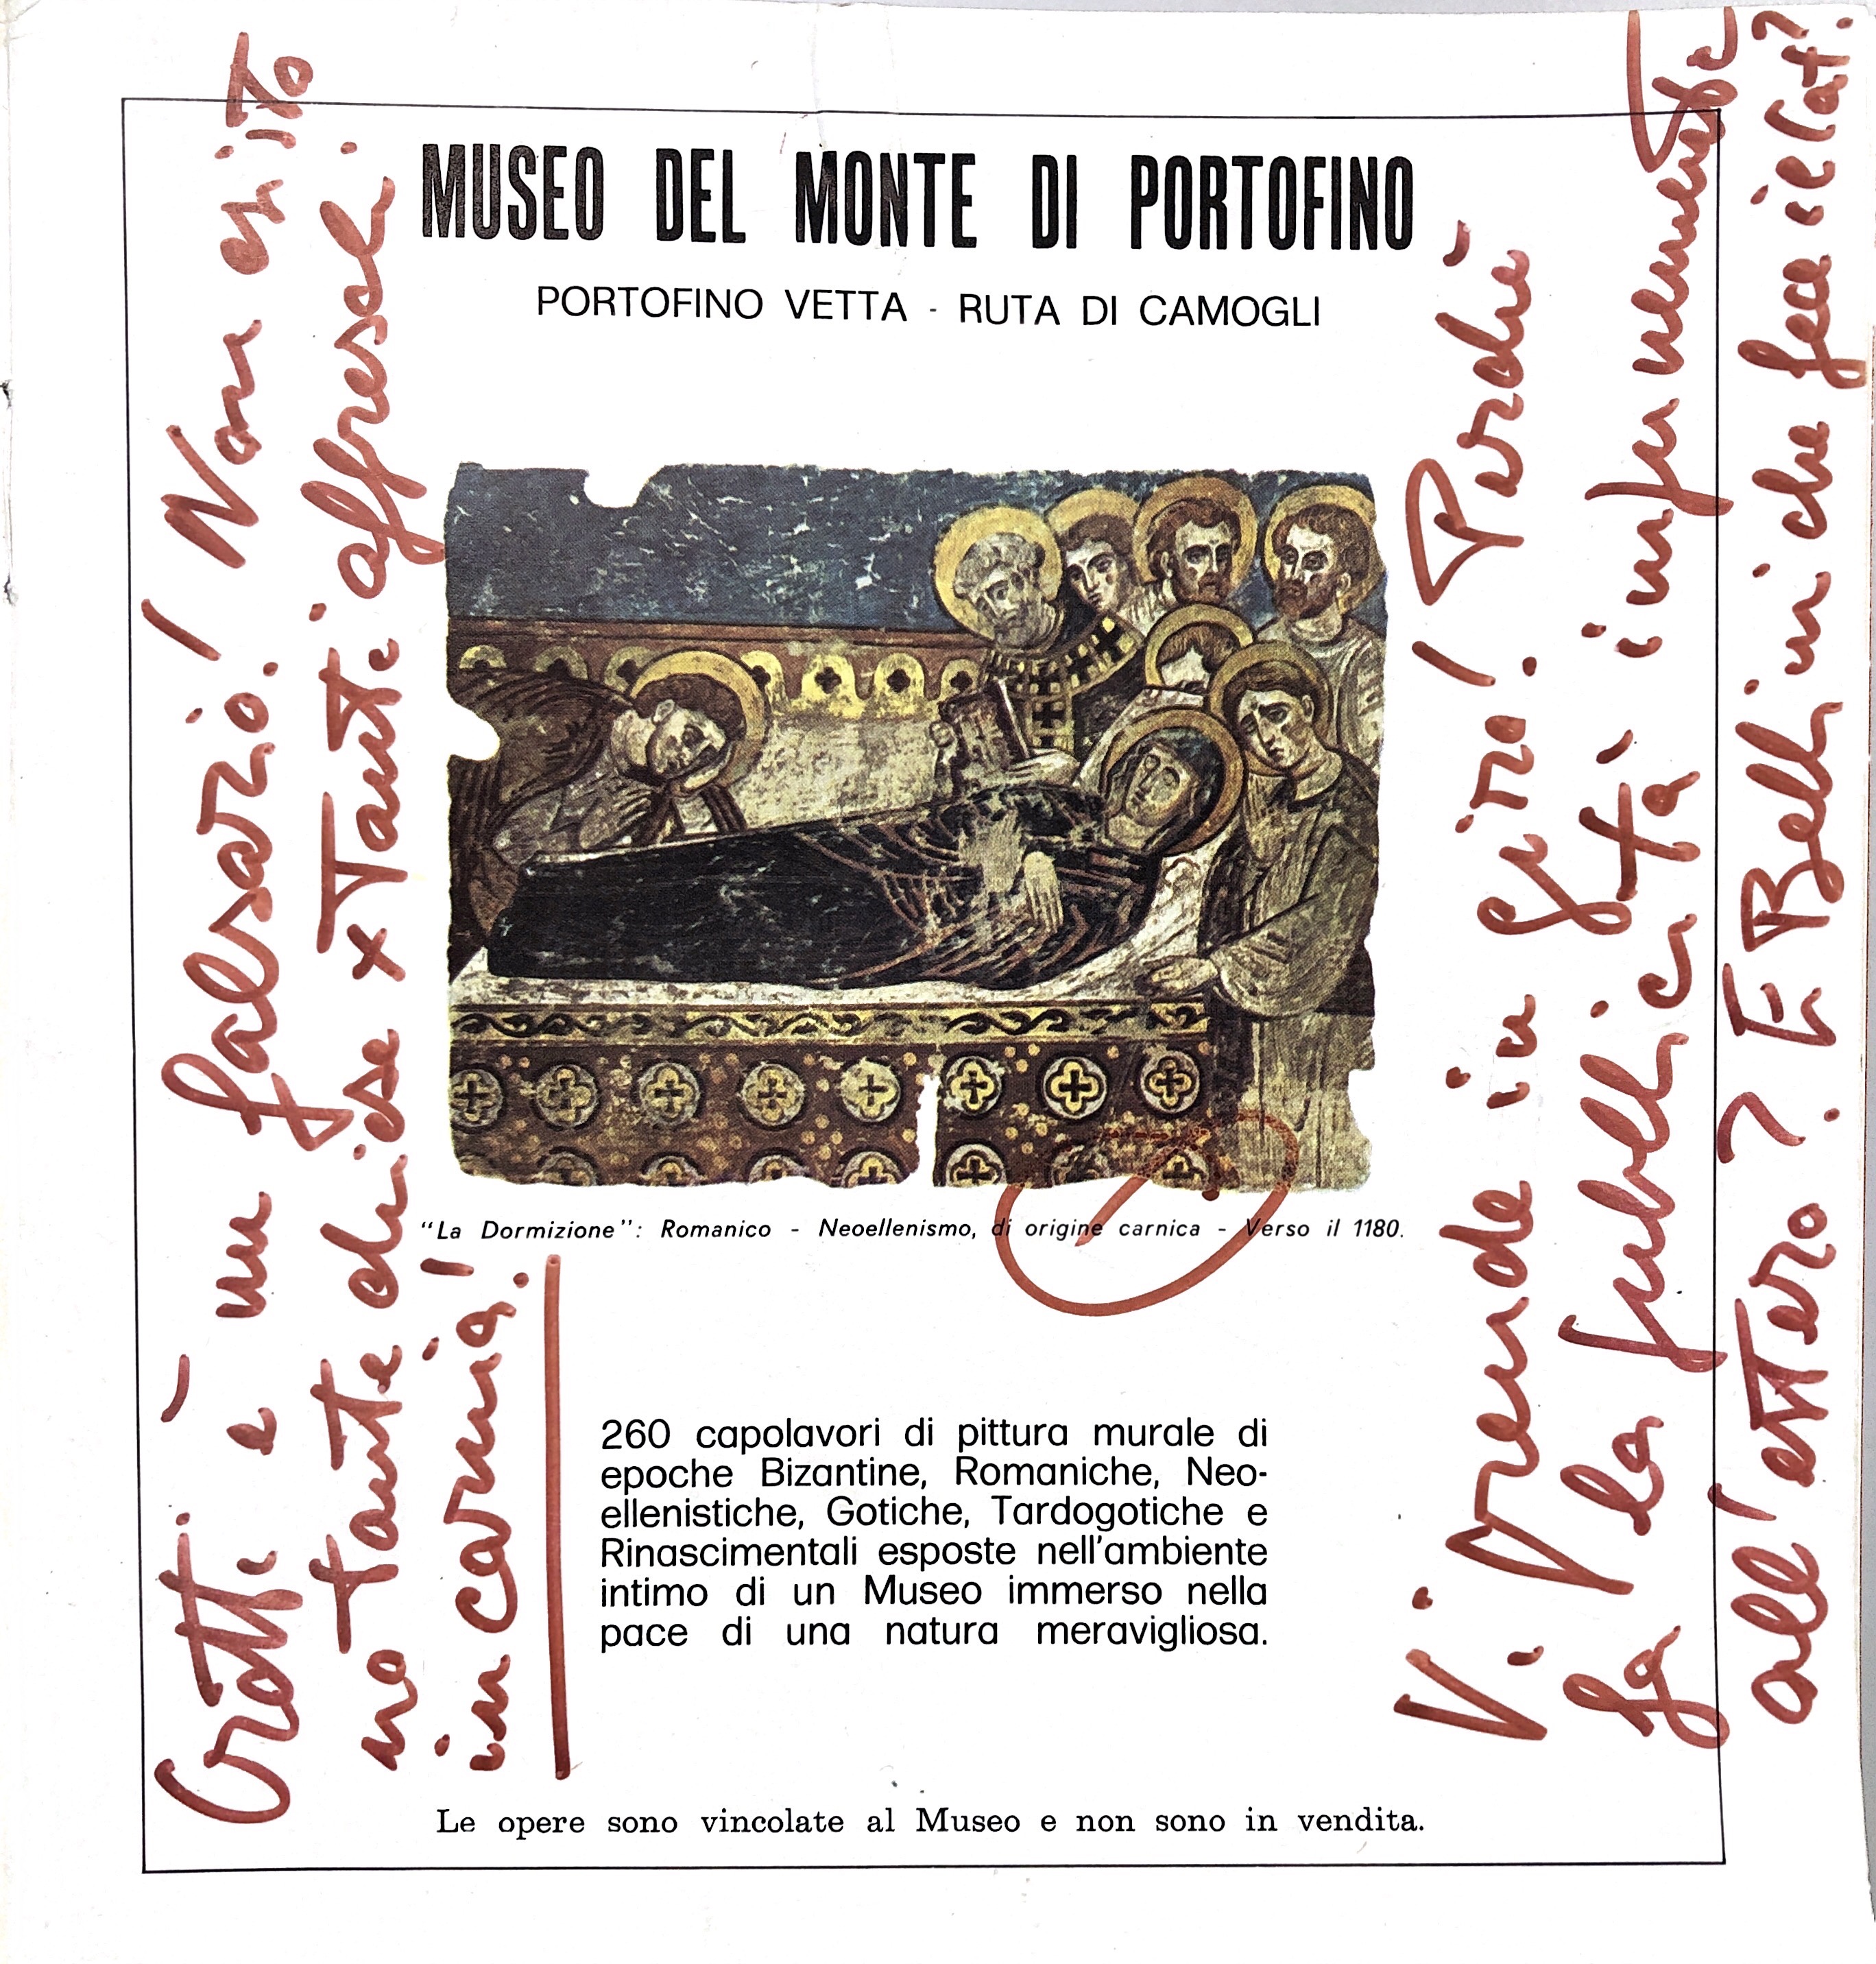 MUSEO DEL MONTE DI PORTOFINO
PORTOFINO VETTA - RUTA DI CAMOGLI
"La Dormizione": Romanico - Neoellenismo, di origine carnica - Verso il 1180.
260 capolavori di pittura murale di
epoche Bizantine, Romaniche, Neo-
ellenistiche, Gotiche, Tardogotiche e
Rinascimentali esposte nell'ambiente
intimo di un Museo immerso nella
pace di una natura meravigliosa.
Le opere sono vincolate al Museo e non sono in vendita.
Crotti è un falsario! Non esisto
no tante chiese x tanti affreschi
in carnia!
?
Vi prende in giro! Perchè
fa la pubblicità impunemente
all'estero? E Bellini che fece il Cat?